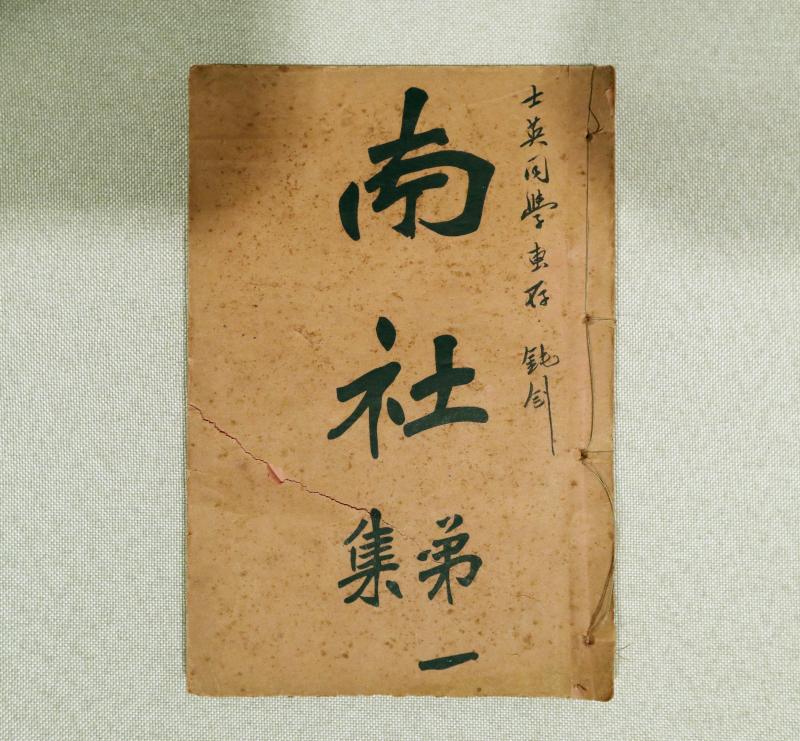 士英同學惠存
鈍劍
南社
第一
集